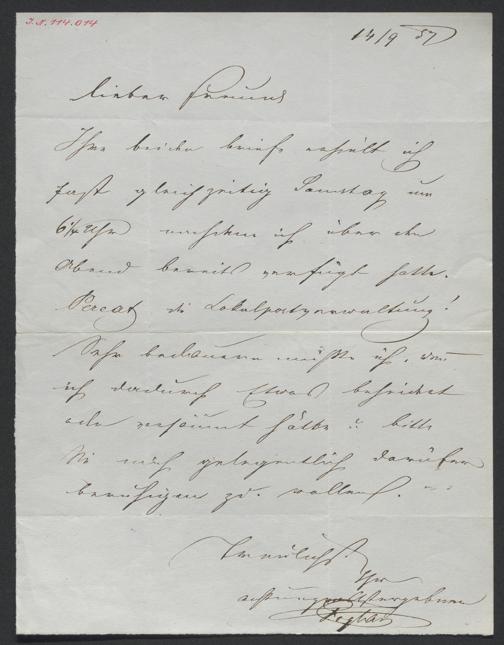 I.N. 114.014
14/9 57
Lieber Freund
Ihre beiden Briefe erhielt ich
fast gleichzeitig Samstag um
6¼ Uhr nachdem ich über den
Abend bereits verfügt hatte.
Pereat die Lokalpostverwaltung!
Sehr bedauern müßte ich, wenn
ich dadurch Etwas behindert
oder versäumt hätte u. bitte
Sie mich gelegentlich darüber
beruhigen zu wollen.
Treulichst
Ihr
achtungsvollst ergebener